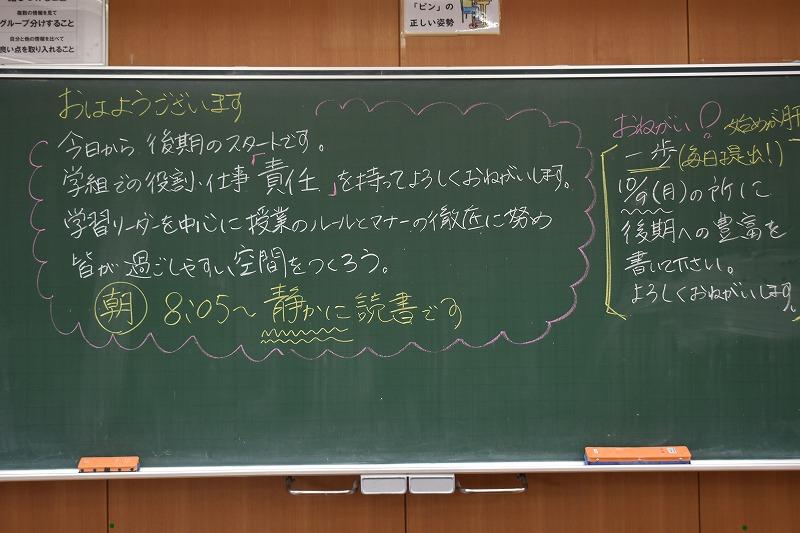 複数の情報を見て
グループ分けすること
自分と他の情報を比べて
良い点を取り入れること
「ピン」の
正しい姿勢
おはようございます
今日から 後期のスタートです。
学組での役割・仕事「責任」を持ってよろしくおねがいします。
学習リーダーを中心に授業のルールとマナーの徹底に努め
皆が過ごしやすい空間をつくろう。
朝 8:05〜 静かに読書です
おねがい! 始めが肝
一歩(毎日提出!)
10/9(月)の所に
後期への豊富を
書いて下さい。
よろしくおねがいします。